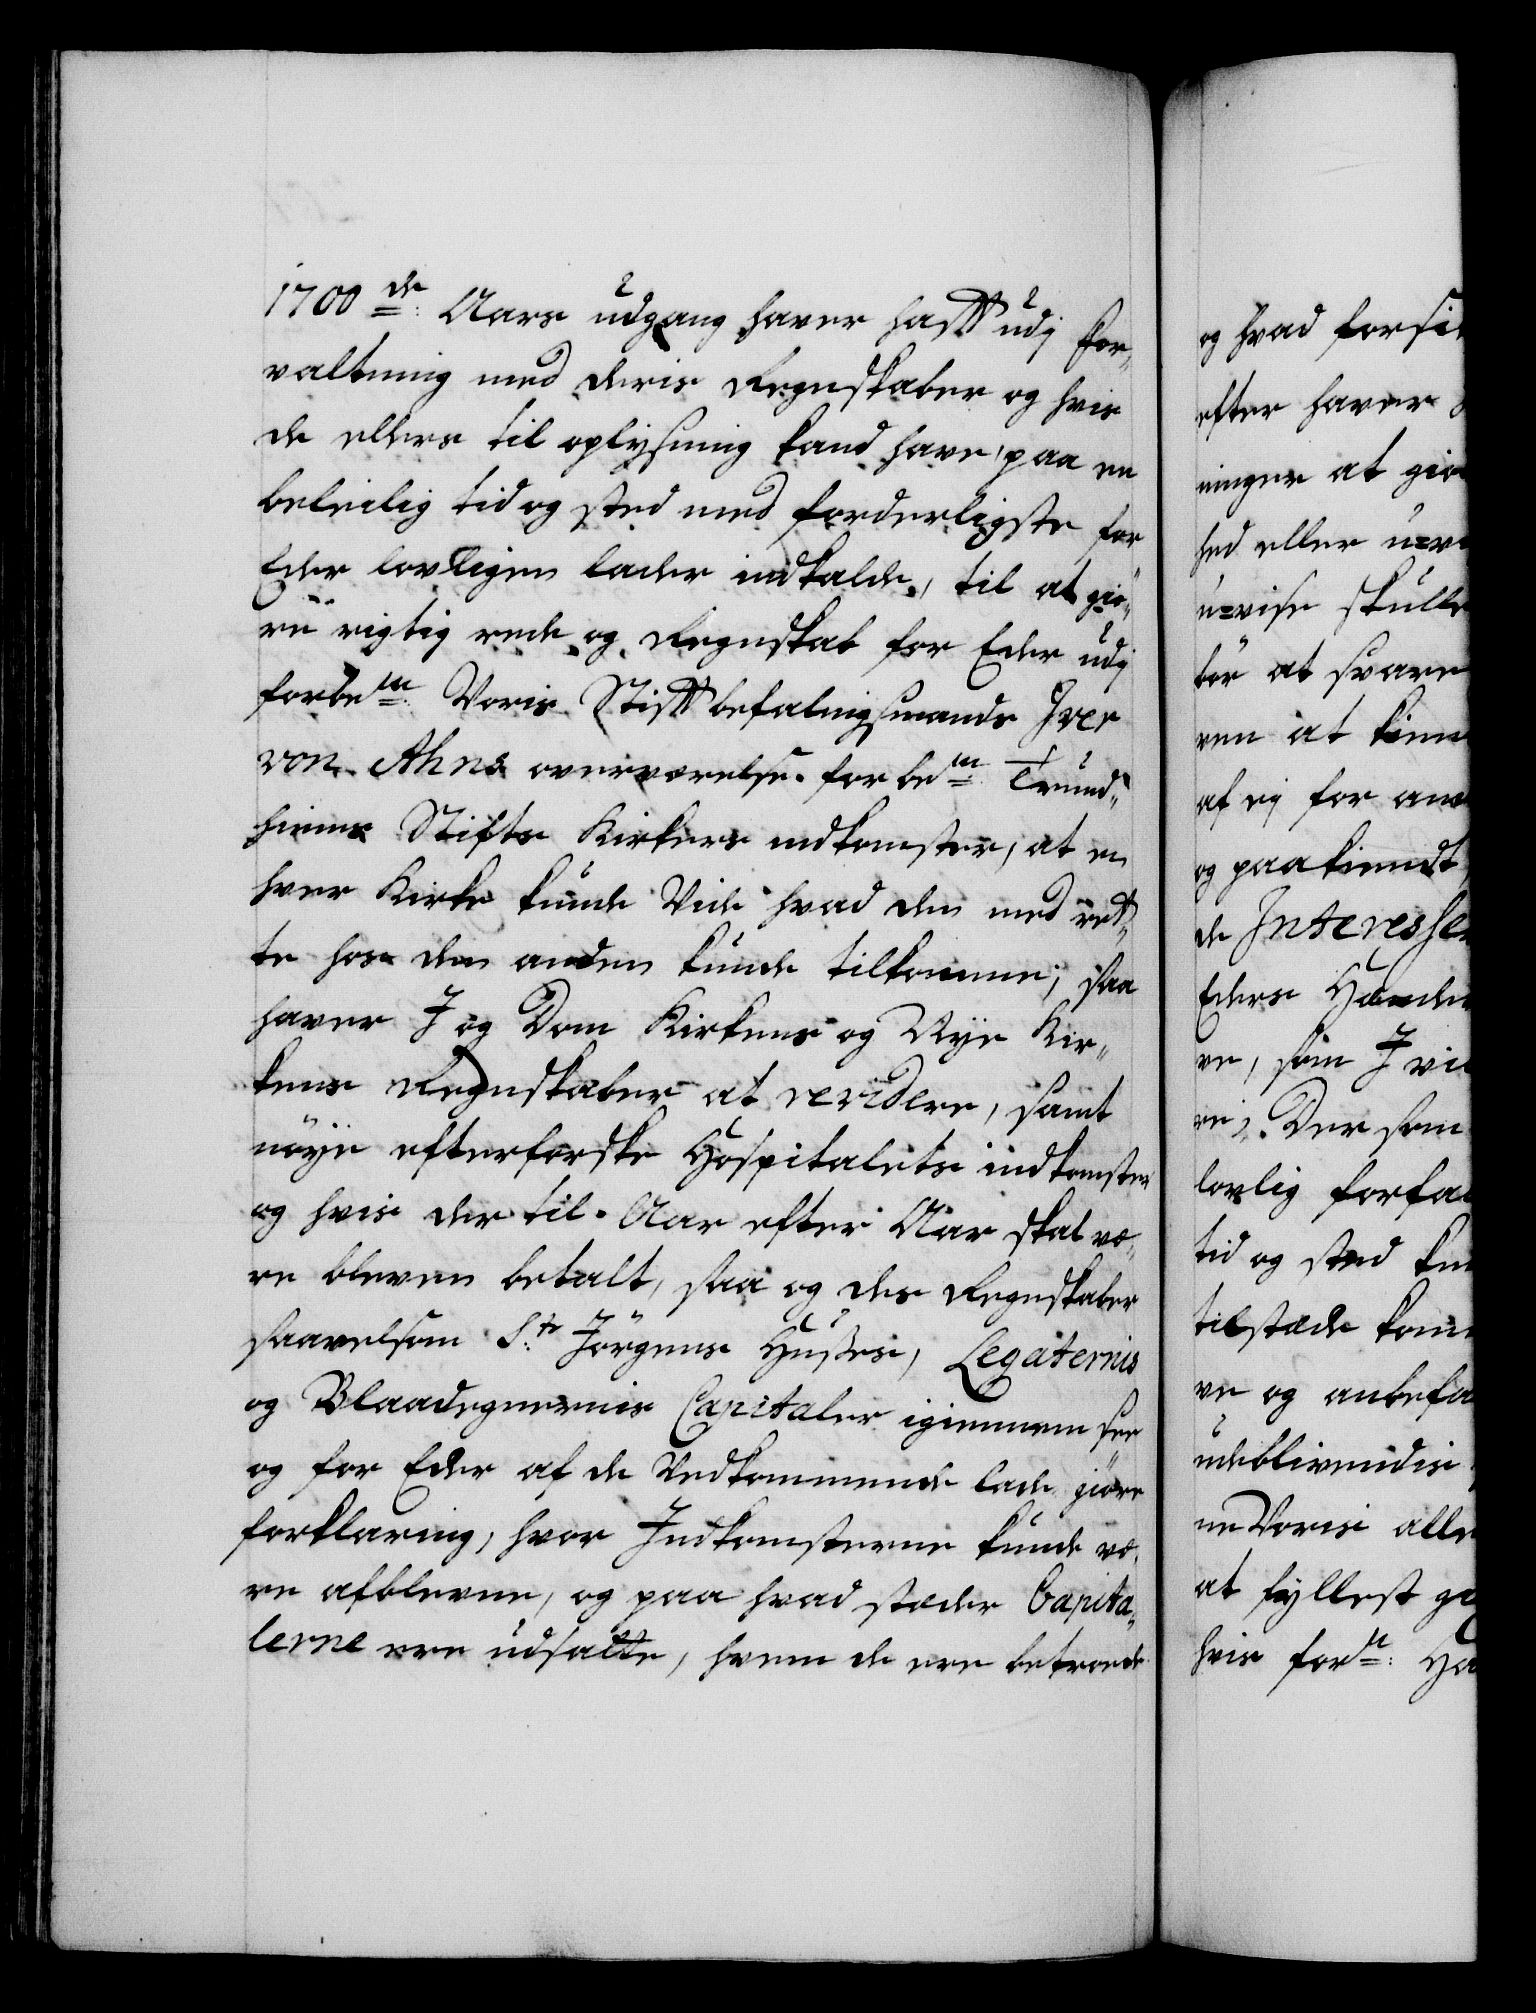 1700de Aars udgang haver hafft udj for„
valtning med deris Regnskaber og hvis
de ellers til oplysning kand have, paa en
beleilig tid og sted med forderligste for
Eder lovligen lader indkalde, til at giö„
re rigtig rede og Regnskab for Eder udj
forbem: Voris Stiftbefalingsmands Iver
von Ahns overværelse. for bem: Trund„
hiems Stifts Kirkers indkomster, at en
hver Kirke kunde Vide hvad den med rett„
te hos den anden kunde tilkomme; saa
haver I og Dom Kirkens og Nye Kir„
kens Regnskaber at revidere, samt
nöye efterforske Hospitalets indkomster
og hvis der til Aar efter Aar skal væ„
re bleven betalt, saa og des Regnskaber
saavelsom St: Jörgens Huses, Legaternis
og Blaadegnernis Capitaler igiennem see
og for Eder af de Vedkommende lade giöre
forklaring, hvor Indkomsterne kunde væ„
re afblevne, og paa hvad stæder Capita„
lerne ere udsatte, hvem de ere betroede
og hvad forsi
efter haver
ninger at giö
hed eller u=v
u=vise skulle
bör at svare
ren at kien
af ej for an
og paakiendt
de Interesse
Eders Hænder
re, som I vil
re; Der som
lovlig forfal
tid og sted
tilstæde kom
ve og anbefa
udeblivendis
ne Voris alle
at fyllest
hvis forn: Ho